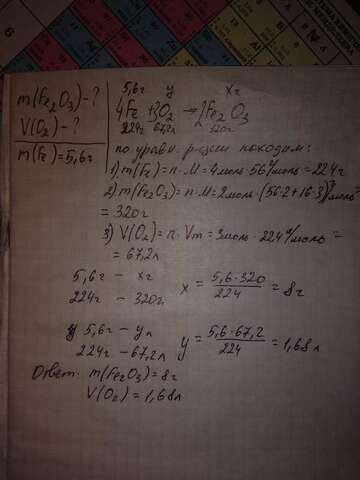 m(Fe₂O₃) - ?
V(O₂) - ?
m(Fe) = 5,6г
5,6г y xг
4Fe + 3O₂ → 2Fe₂O₃
224г 67,2л 320г
по уравн. р-ции находим:
1) m(Fe) = n · M = 4моль · 56 г/моль = 224г
2) m(Fe₂O₃) = n · M = 2моль · (56·2+16·3) г/моль =
= 320г
3) V(O₂) = n · Vm = 3моль · 22,4 л/моль =
= 67,2л
5,6г - xг
224г - 320г
x = 5,6 · 320 / 224 = 8г
5,6г - yл
224г - 67,2л
y = 5,6 · 67,2 / 224 = 1,68л
Ответ: m(Fe₂O₃) = 8г
V(O₂) = 1,68л